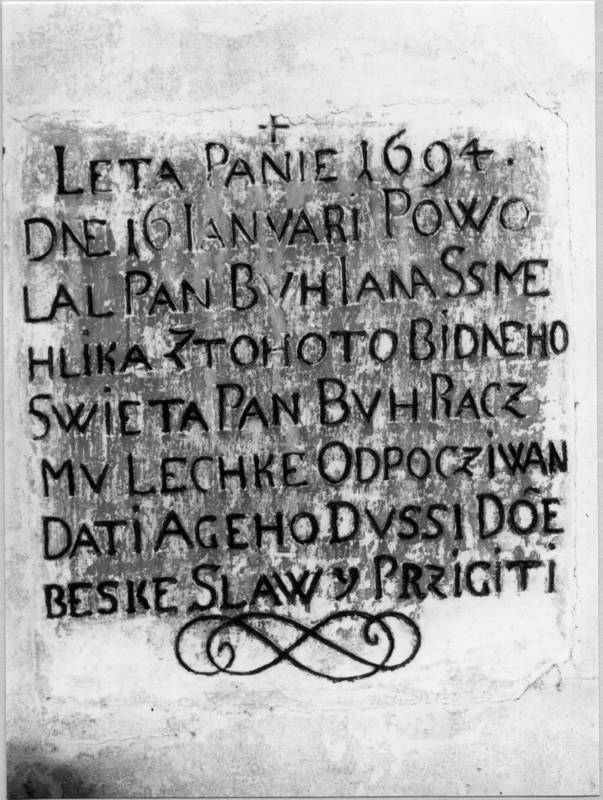 +
LETA PANIE 1694.
DNE 16 IANVARI POWO
LAL PAN BVH IANA SSME
HLIKA ZTOHOTO BIDNEHO
SWIETA PAN BVH RACZ
MV LECHKE ODPOCZIWAN
DATI AGEHO DVSSI DÕE
BESKE SLAWY PRZIGITI